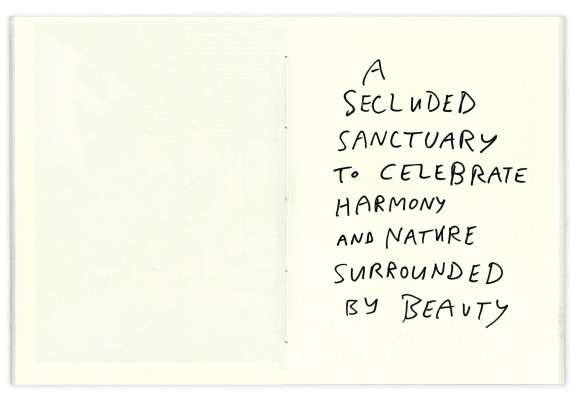 A
SECLUDED
SANCTUARY
TO CELEBRATE
HARMONY
AND NATURE
SURROUNDED
BY BEAUTY